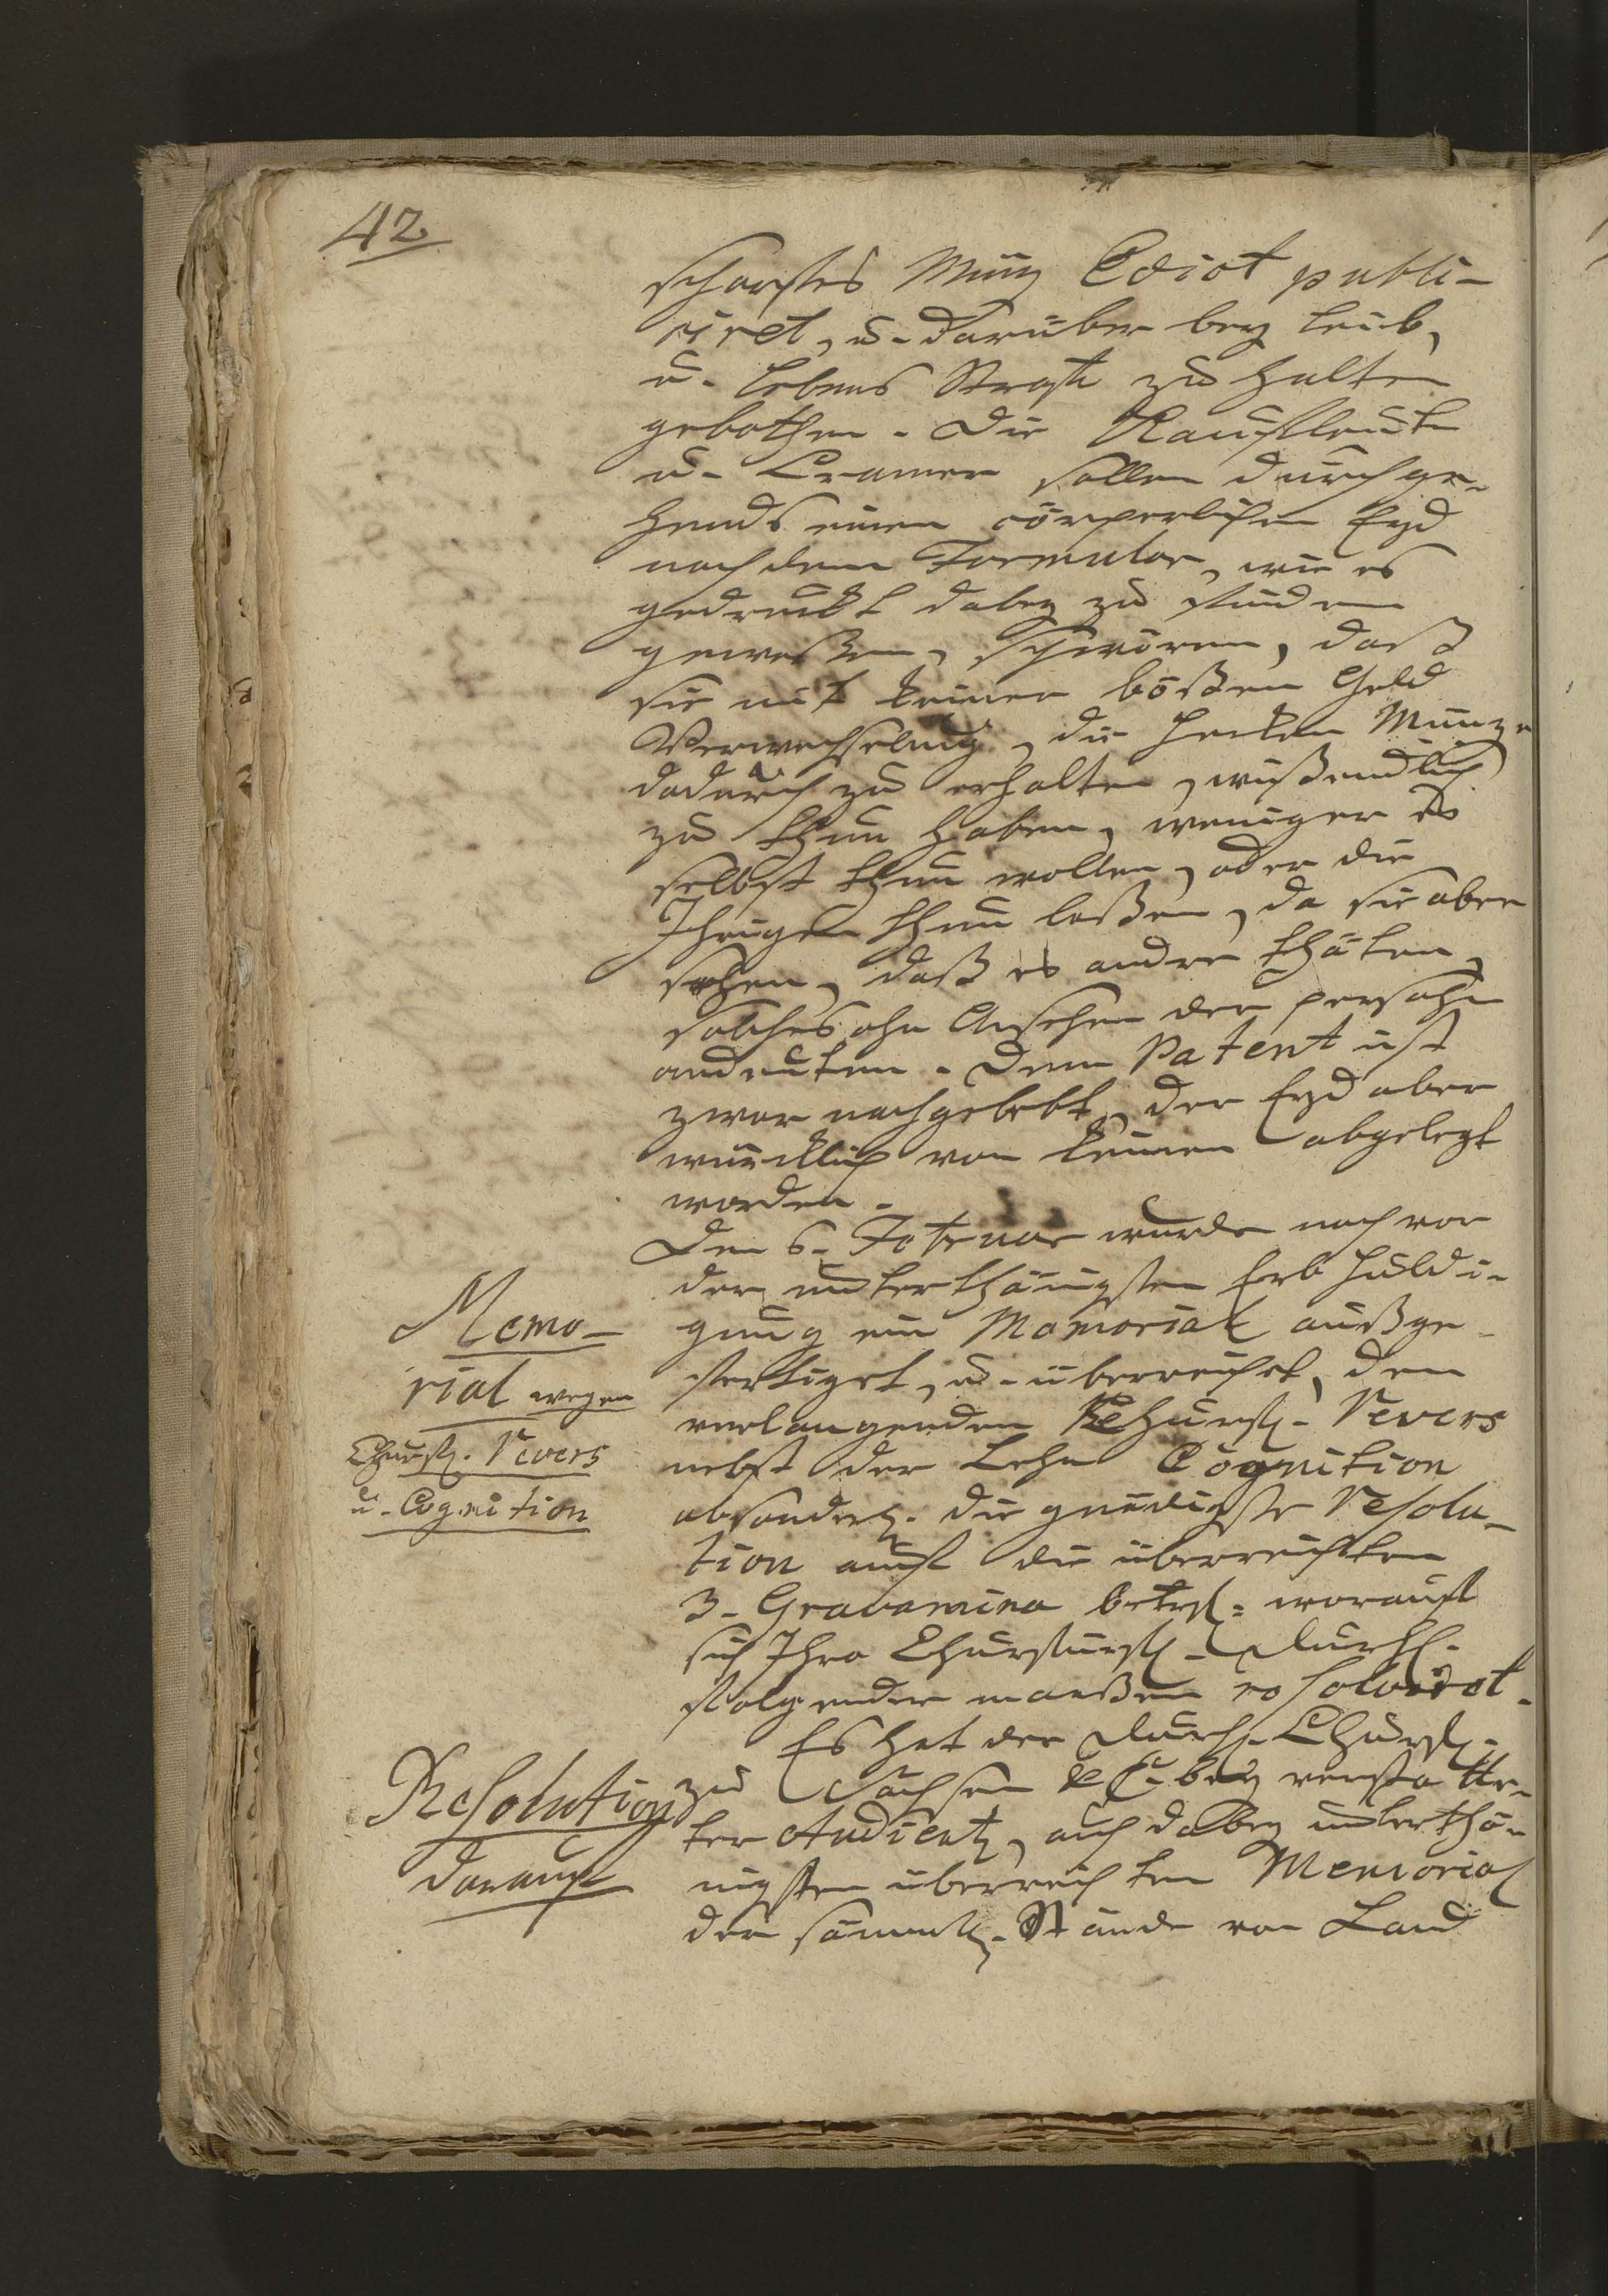 42
scharffes Müntz Edict publi-
ciret, u. darüber bey Leib,
u. Lebens Straffe zu halten
gebothen. Die Kauffleute
u. Cramer sollen durchge-
hends einen cörperlichen Eyd
nach dem Formular, wie es
gedruckt dabey zu finden
geweßen, schwören, daß
sie mit keiner bößen Geld
Verwechselung, die Hecken Müntze
dadurch zu erhalten, wißendlich
zu thun haben, weniger es
selbst thun wollen, oder die
Ihrigen thun laßen, da sie aber
sehen, daß es andre thäten,
solches ohn Ansehen der persohn
andeuten. Dem Patent ist
zwar nachgelebt, der Eyd aber
würcklich von keinen abgelegt
worden.
Den 6. Februar wurde noch vor
der unterthänigsten Erb Huldi-
gung ein Memorial außge-
fertiget, u. überreicht, den
verlangenden Churfl. Revers
nebst der Lehn Cognition
absonderl. die gnädigste Resolu-
tion auff die überreichten
3. Gravamina betrfl. worauff
sich Ihro Churfürstl. Durchl.
folgender maaßen resolviret.
Es hat der Durchl. Churfl.
zu Sachsen bey verstatte-
ter Audientz, auch dabey unterthä-
nigsten überreichten Memorial
der sämmtl. Stände von Land
Memo-
rial wegen
Churfl. Revers
u. Cognition
Resolution
darauff